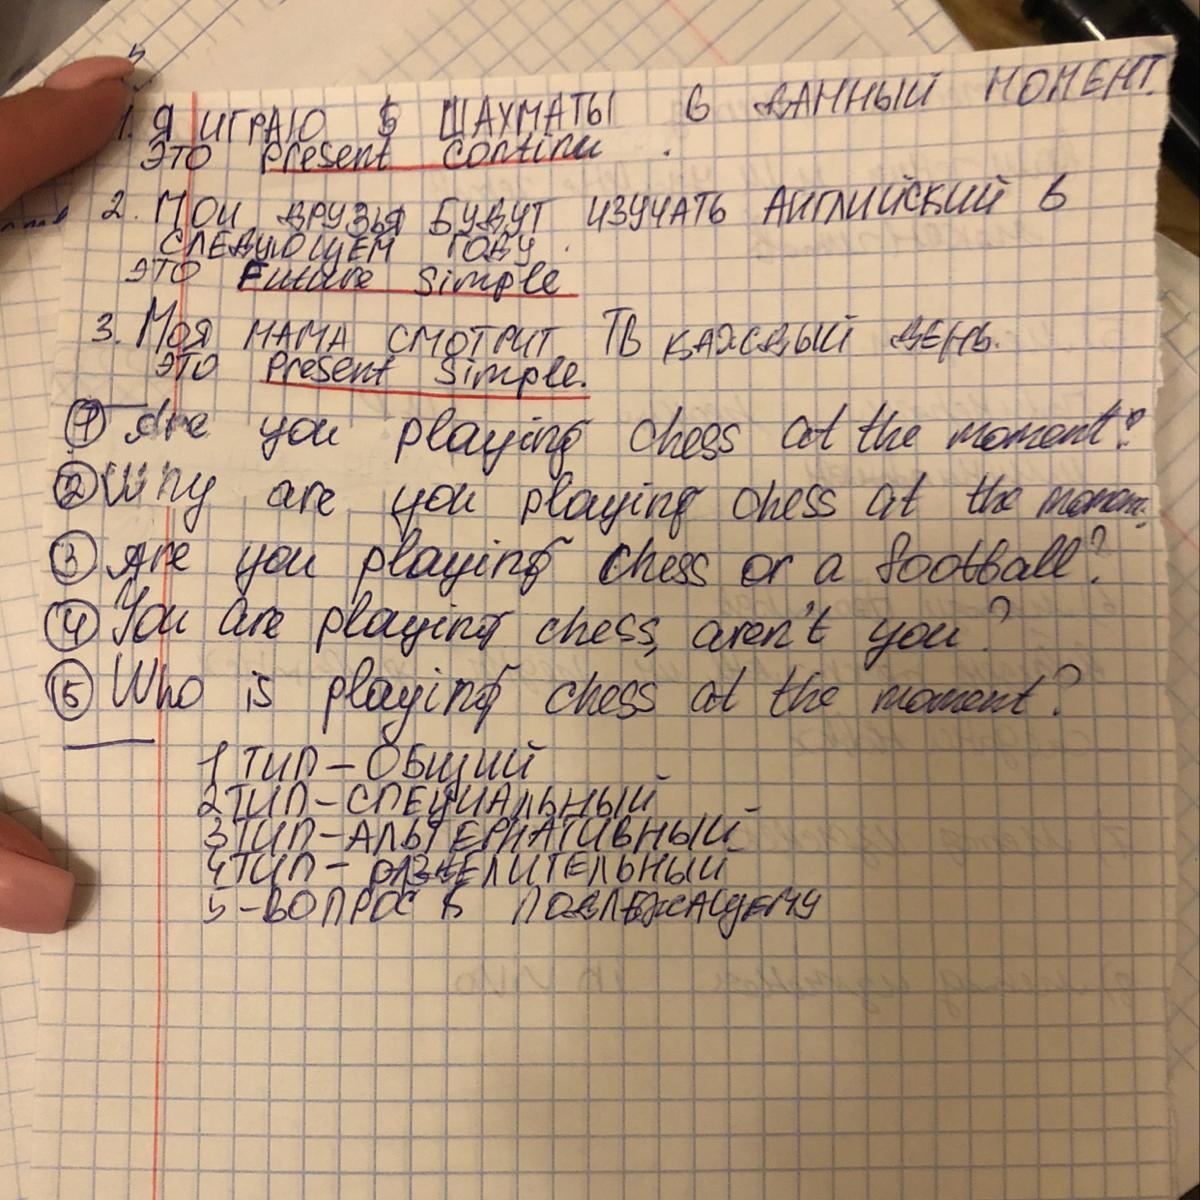 1. Я ИГРАЮ В ШАХМАТЫ В ДАННЫЙ МОМЕНТ.
ЭТО Present Continu .
2. МОИ ДРУЗЬЯ БУДУТ ИЗУЧАТЬ АНГЛИЙСКИЙ В
СЛЕДУЮЩЕМ ГОДУ.
ЭТО Future Simple
3. МОЯ МАМА СМОТРИТ ТВ КАЖДЫЙ ДЕНЬ.
ЭТО Present Simple.
1 Are you playing chess at the moment?
2 Why are you playing chess at the momen?
3 Are you playing chess or a football?
4 You are playing chess, aren't you?
5 Who is playing chess at the moment?
1 ТИП – ОБЩИЙ
2 ТИП – СПЕЦИАЛЬНЫЙ
3 ТИП – АЛЬТЕРНАТИВНЫЙ
4 ТИП – РАЗДЕЛИТЕЛЬНЫЙ
5 – ВОПРОС К ПОДЛЕЖАЩЕМУ